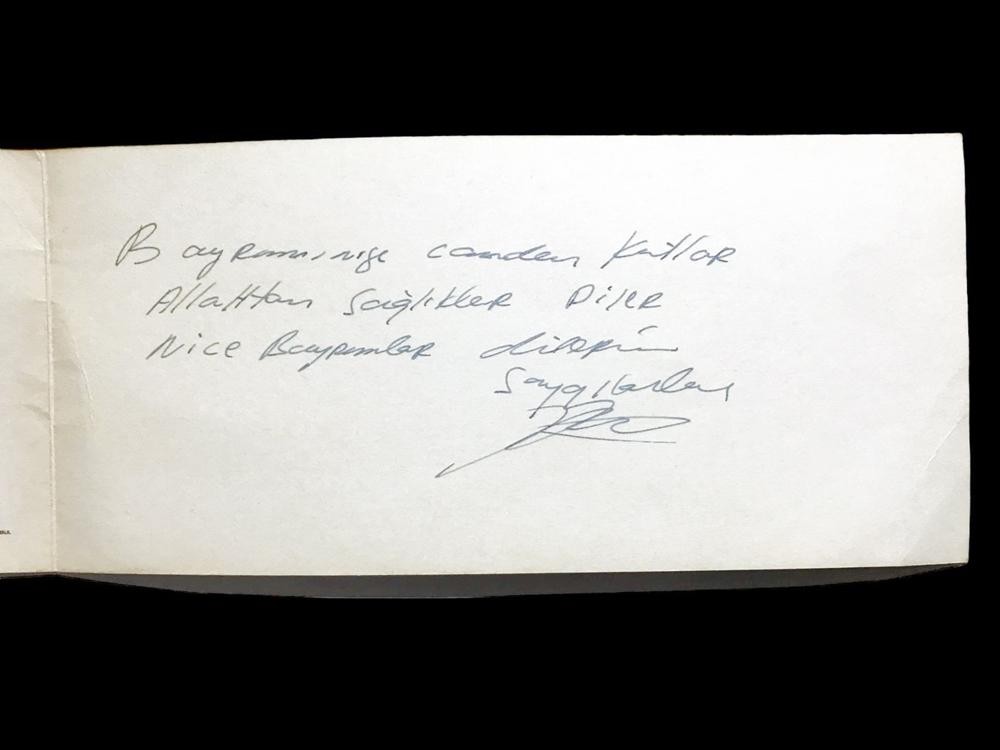 Bayramınızı candan Kutlar
Allahtan Sağlıklar Diler
Nice Bayramlar dilerim
Saygılarla